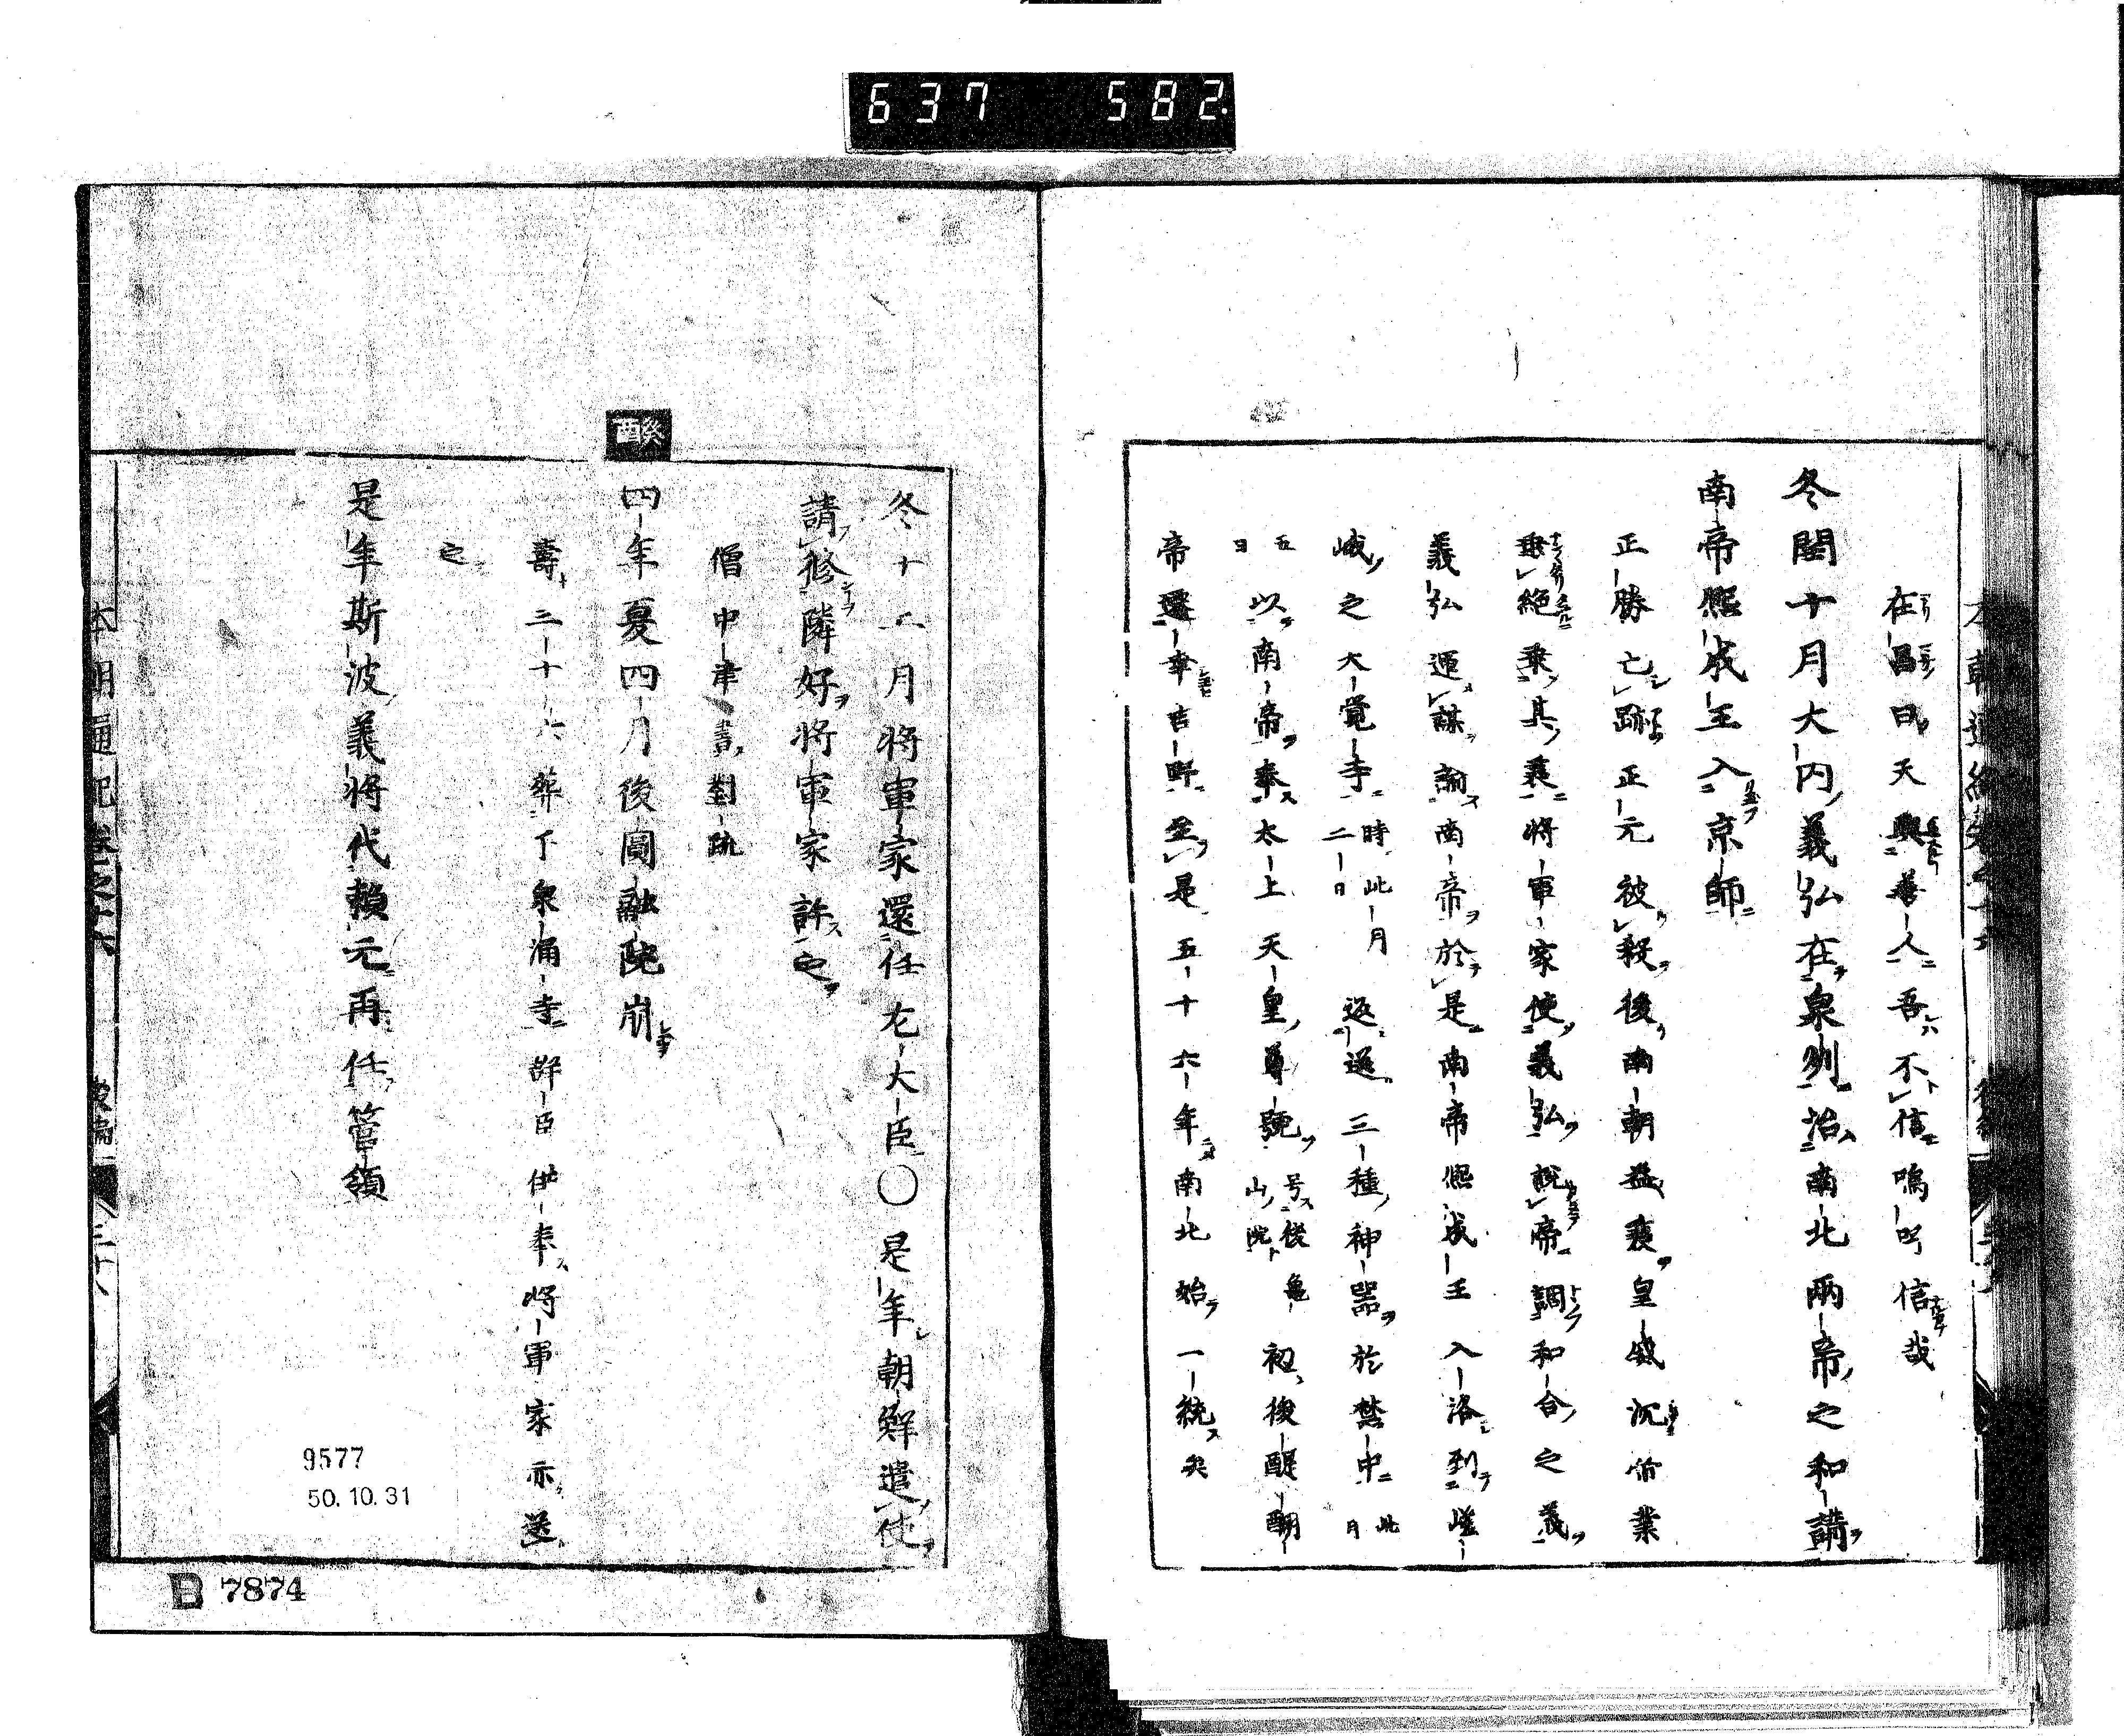 637 582.
在昌曰天與善人吾不信嗚呼信哉
冬閏十月大内義弘在泉州治南北兩帝之和講
南帝熙成王入京師
正勝亡跡正元被殺後南朝益衰皇威沉帝業
垂絕乗其衰將軍家使義弘說帝調和合之義
義弘運謀諭南帝於是南帝熙成王入洛到嵯
峨之大覚寺時此月二日返送三種神器於禁中此月
五日以南帝奉太上天皇尊號号後亀山院初後醍醐
帝遷幸吉野至是五十六年南北始一統矣
冬十二月將軍家還任左大臣○是年朝鮮遣使
請修隣好將軍家許之
僧中津書對疏
癸酉
四年夏四月後圓融院崩
壽三十六葬于泉涌寺群臣供奉將軍家亦送
之
是年斯波義將代頼元再任管領
本朝通紀巻之十六 後編 三十八
9577
50.10.31
B 7874